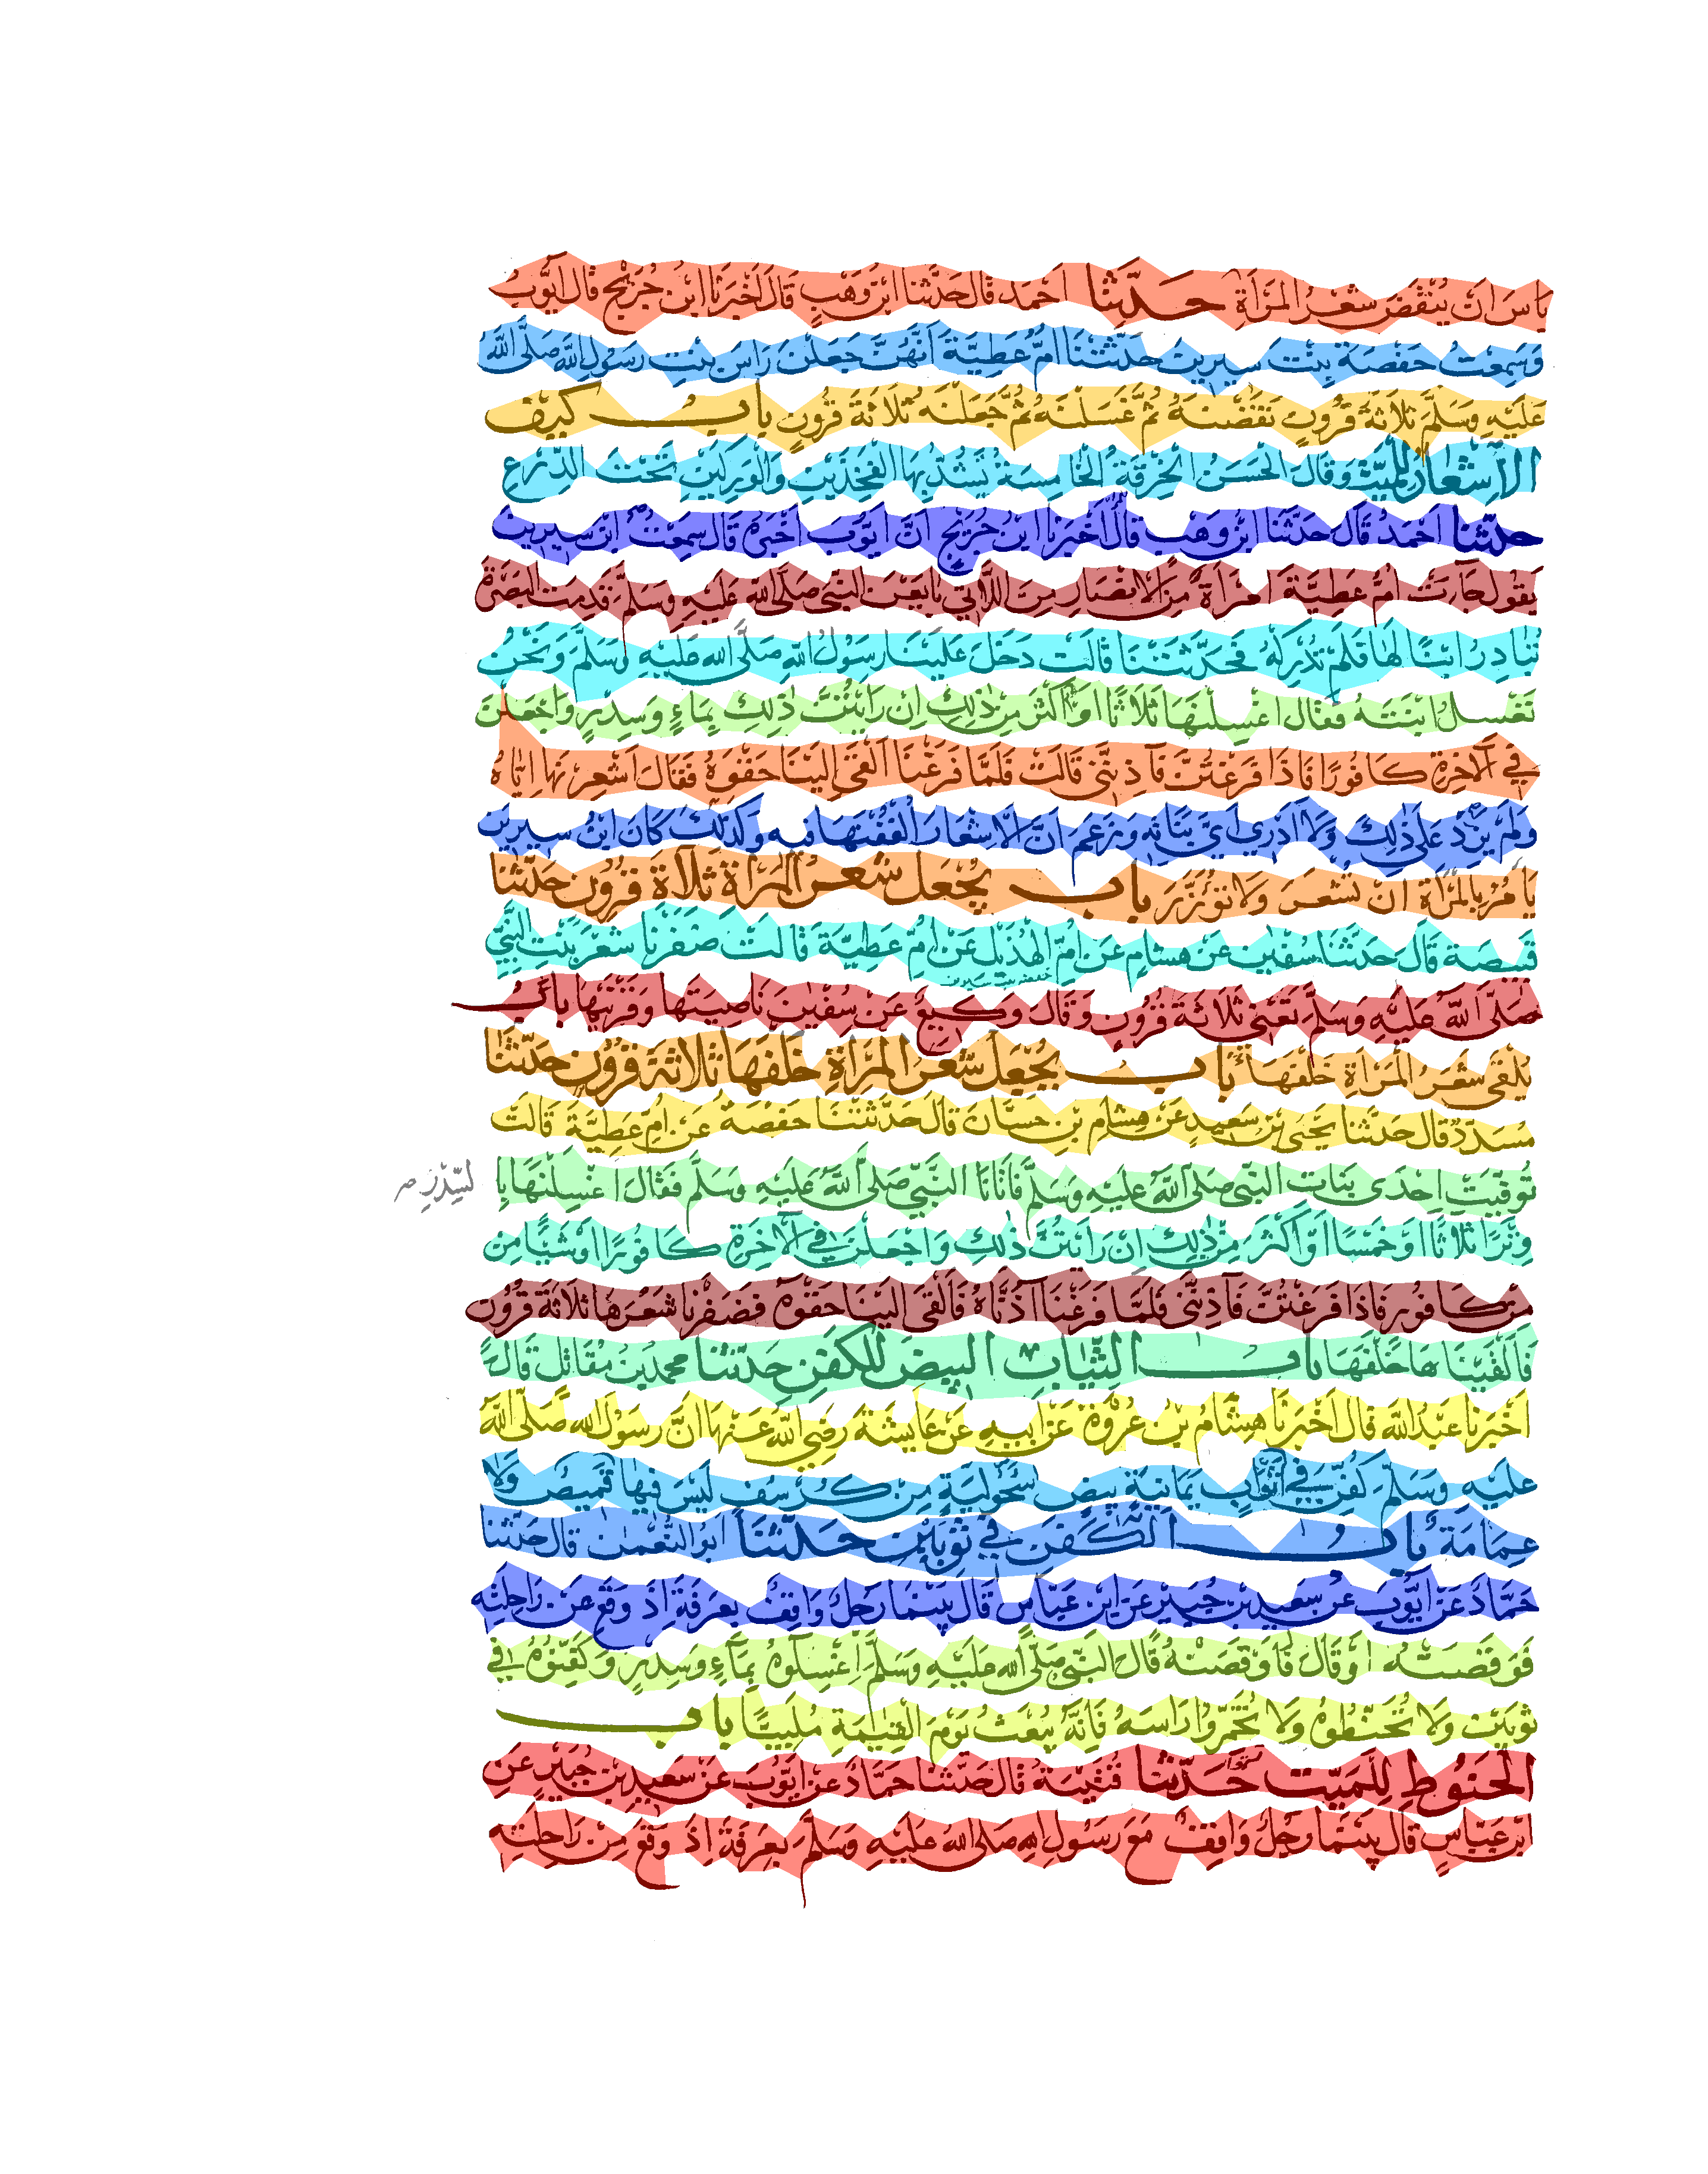 بَاسَ اَنْ يُنْقَضَ شَعْرُ المَرْأَةِ حَدَّثَنَا اَحْمَد قَالَ حَدَّثَنَا ابْنُ وَهْبٍ قَالَ اَخْبَرَنَا ابْنُ جُرَيْجٍ قَالَ اَيُّوبُ
وَسَمِعْتُ حَفْصَةَ بِنْتَ سِيرِينَ حَدَّثَتْنَا اُمُّ عَطِيَّةَ اَنَّهُنَّ جَعَلْنَ رَاسَ بِنْتِ رَسُولِ اللهِ صَلَّى اللهُ
عَلَيْهِ وَسَلَّمَ ثَلَاثَةَ قُرُونٍ نَقَضْنَهُ ثُمَّ غَسَلْنَهُ ثُمَّ جَعَلْنَهُ ثَلَاثَةَ قُرُونٍ بابُ كَيْفَ
الاِشْعَارُ لِلْمَيِّتِ وَقَالَ الحَسَنُ الخِرْقَةُ الخَامِسَةُ يَشُدُّ بِهَا الفَخِذَيْنِ وَالوَرِكَيْنِ تَحْتَ الدِّرْعِ
حدثنا اَحْمَدُ قَالَ حَدَّثَنَا ابْنُ وَهْبٍ قَالَ اَخْبَرَنَا ابْنُ جُرَيْجٍ اَنَّ اَيُّوبَ اَخْبَرَهُ قَالَ سَمِعْتُ ابْنَ سِيرِينَ
يَقُولُ جَاءَتْ اُمُّ عَطِيَّةَ امْرَأَةٌ مِنَ الاَنْصَارِ مِنَ اللَّاتِي بَايَعْنَ النَّبِيَّ صَلَّى اللهُ عَلَيْهِ وَسَلَّمَ قَدِمَتِ البَصْرَةَ
تُبَادِرُ ابْنًا لَهَا فَلَمْ تُدْرِكْهُ فَحَدَّثَتْنَا قَالَتْ دَخَلَ عَلَيْنَا رَسُولُ اللهِ صَلَّى اللهُ عَلَيْهِ وَسَلَّمَ وَنَحْنُ
نَغْسِلُ ابْنَتَهُ فَقَالَ اغْسِلْنَهَا ثَلَاثًا اَوْ اَكْثَرَ مِنْ ذٰلِكِ اِنْ رَاَيْتُنَّ ذٰلِكِ بِمَاءٍ وَسِدْرٍ وَاجْعَلْنَ
فِي الآخِرَةِ كَافُورًا فَاِذَا فَرَغْتُنَّ فَآذِنَّنِي قَالَتْ فَلَمَّا فَرَغْنَا اَلْقَى اِلَيْنَا حَقْوَهُ فَقَالَ اَشْعِرْنَهَا اِيَّاهُ
وَلَمْ يَزِدْ عَلَى ذٰلِكَ وَلَا اَدْرِي اَيُّ بَنَاتِهِ وَزَعَمَ اَنَّ الاِشْعَارَ الْفُفْنَهَا فِيهِ وَكَذٰلِكَ كَانَ ابْنُ سِيرِينَ
يَأْمُرُ بِالمَرْأَةِ اَنْ تُشْعَرَ وَلَا تُؤْزَرَ باب يُجْعَلُ شَعْرُ المَرْأَةِ ثَلَاثَةَ قُرُونٍ حَدَّثَنَا
قَبِيصَةُ قَالَ حَدَّثَنَا سُفْيٰنُ عَنْ هِشَامٍ عَنْ اُمِّ الهُذَيْلِ عَنْ اُمِّ عَطِيَّةَ قَالَتْ ضَفَرْنَا شَعَرَ بِنْتِ النَّبِيِّ
حفصة بنت سيرين
صَلَّى اللهُ عَلَيْهِ وَسَلَّمَ تَعْنِي ثَلَاثَةَ قُرُونٍ وَقَالَ وَكِيعٌ عَنْ سُفْيٰنَ نَاصِيَتَهَا وَقَرْنَيْهَا بابُ
يُلْقَى شَعَرُ المَرْأَةِ خَلْفَهَا بابُ يُجْعَلُ شَعَرُ المَرْأَةِ خَلْفَهَا ثَلَاثَةَ قُرُونٍ حَدَّثَنَا
مُسَدَّدٌ قَالَ حَدَّثَنَا يَحْيَى بْنُ سَعِيدٍ عَنْ هِشَامِ بْنِ حَسَّانَ قَالَ حَدَّثَتْنَا حَفْصَةُ عَنْ اُمِّ عَطِيَّةَ قَالَتْ
تُوُفِّيَتْ اِحْدَى بَنَاتِ النَّبِيِّ صَلَّى اللهُ عَلَيْهِ وَسَلَّمَ فَاَتَانَا النَّبِيُّ صَلَّى اللهُ عَلَيْهِ وَسَلَّمَ فَقَالَ اغْسِلْنَهَا بِا لسِّدْرِ
وِتْرًا ثَلَاثًا اَوْ خَمْسًا اَوْ اَكْثَرَ مِنْ ذٰلِكِ اِنْ رَاَيْتُنَّ ذٰلِكِ وَاجْعَلْنَ فِي الآخِرَةِ كَافُورًا اَوْ شَيْئًا مِنْ
مِنْ كَافُورٍ فَاِذَا فَرَغْتُنَّ فَآذِنَّنِي فَلَمَّا فَرَغْنَا آذَنَّاهُ فَاَلْقَى اِلَيْنَا حَقْوَهُ فَضَفَرْنَا شَعَرَهَا ثَلَاثَةَ قُرُونٍ
فَاَلْقَيْنَاهَا خَلْفَهَا بابُ الثِّيَابِ البِيضِ لِلْكَفَنِ حَدَّثَنَا مُحَمَّدُ بْنُ مُقَاتِلٍ قَالَ
اَخْبَرَنَا عَبْدُ اللهِ قَالَ اَخْبَرَنَا هِشَامُ بْنُ عُرْوَةَ عَنْ اَبِيهِ عَنْ عَائِشَةَ رَضِيَ اللهُ عَنْهَا اَنَّ رَسُولَ اللهِ صَلَّى اللهُ
عَلَيْهِ وَسَلَّمَ كُفِّنَ فِي اَثْوَابٍ يَمَانِيَةٍ بِيضٍ سُحُولِيَّةٍ مِنْ كُرْسُفٍ لَيْسَ فِيهَا قَمِيصٌ وَلَا
عِمَامَةٌ بابُ الكَفَنِ فِي ثَوْبَيْنِ حَدَّثَنَا اَبُو النُّعْمٰنِ قَالَ حَدَّثَنَا
حَمَّادٌ عَنْ اَيُّوبَ عَنْ سَعِيدِ بْنِ جُبَيْرٍ عَنِ ابْنِ عَبَّاسٍ قَالَ بَيْنَمَا رَجُلٌ وَاقِفٌ بِعَرَفَةَ اِذْ وَقَعَ عَنْ رَاحِلَتِهِ
فَوَقَصَتْهُ اَوْ قَالَ فَاَوْقَصَتْهُ قَالَ النَّبِيُّ صَلَّى اللهُ عَلَيْهِ وَسَلَّمَ اغْسِلُوهُ بِمَاءٍ وَسِدْرٍ وَكَفِّنُوهُ فِي
ثَوْبَيْنِ وَلَا تُحَنِّطُوهُ وَلَا تُخَمِّرُوا رَاسَهُ فَاِنَّهُ يُبْعَثُ يَوْمَ القِيٰمَةِ مُلَبِّيًا باب
الحَنُوطِ لِلْمَيِّتِ حَدَّثَنَا قُتَيْبَةُ قَالَ حَدَّثَنَا حَمَّادٌ عَنْ اَيُّوبَ عَنْ سَعِيدِ بْنِ جُبَيْرٍ عَنِ
ابْنِ عَبَّاسٍ قَالَ بَيْنَمَا رَجُلٌ وَاقِفٌ مَعَ رَسُولِ اللهِ صَلَّى اللهُ عَلَيْهِ وَسَلَّمَ بِعَرَفَةَ اِذْ وَقَعَ مِنْ رَاحِلَتِهِ